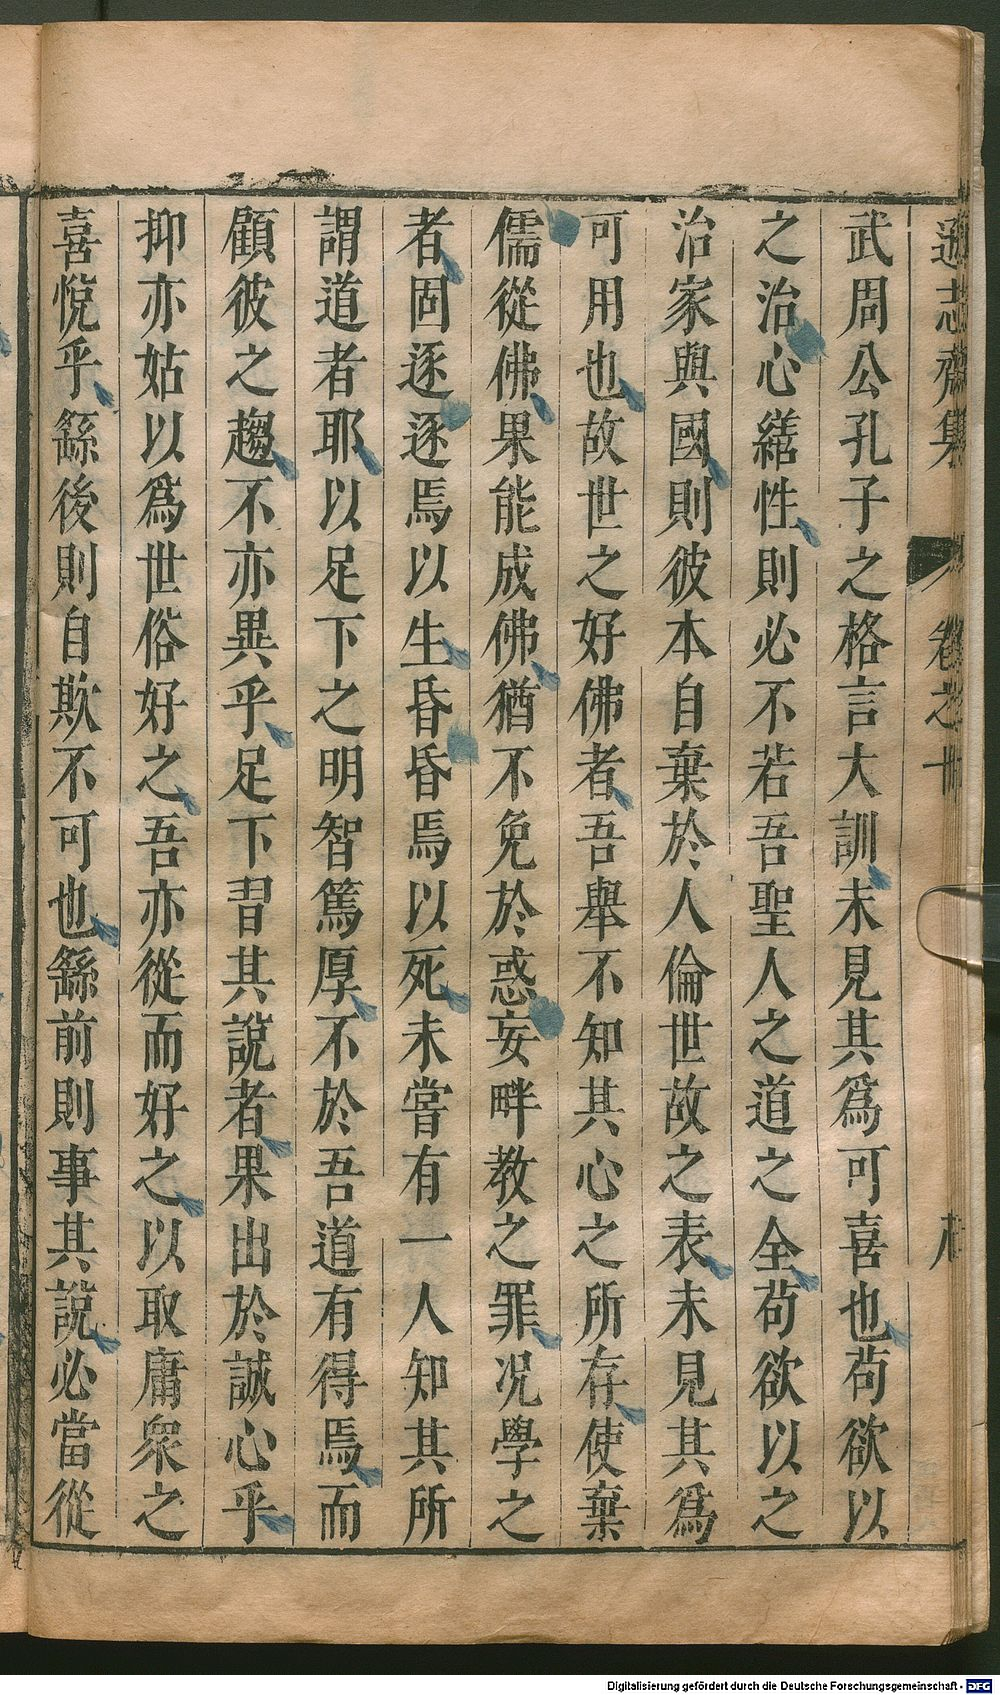 遜志齋集 卷之十
武周公孔子之格言大訓未見其爲可喜也苟欲以
之治心繕性則必不若吾聖人之道之全苟欲以之
治家與國則彼本自棄於人倫世故之表未見其爲
可用也故世之好佛者吾舉不知其心之所存使棄
儒從佛果能成佛猶不免於惑妄畔教之罪况學之
者固逐逐焉以生昏昏焉以死未嘗有一人知其所
謂道者耶以足下之明智篤厚不於吾道有得焉而
顧彼之趨不亦異乎足下習其說者果出於誠心乎
抑亦姑以爲世俗好之吾亦從而好之以取庸衆之
喜悅乎繇後則自欺不可也繇前則事其說必當從
Digitalisierung gefördert durch die Deutsche Forschungsgemeinschaft - DFG